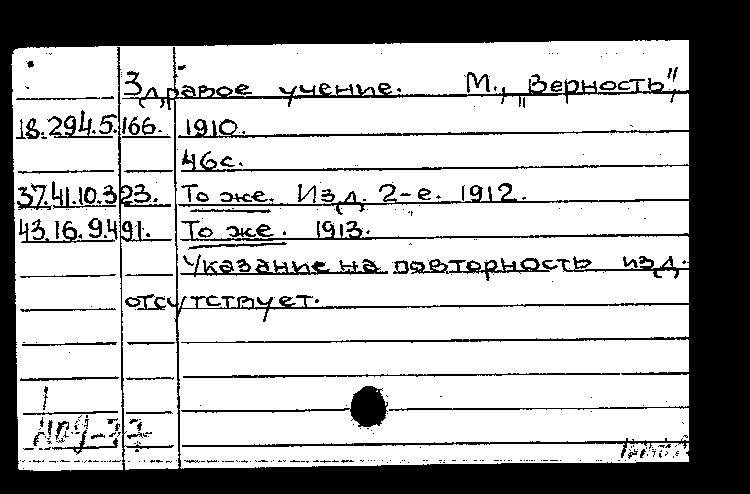 Здравое учение. М., „Верность",
18.294.5.166. 1910.
46с.
37.41.10.323. То же. Изд. 2-е. 1912.
43.16.9.491. То же. 1913.
Указание на повторность изд.
отсутствует.